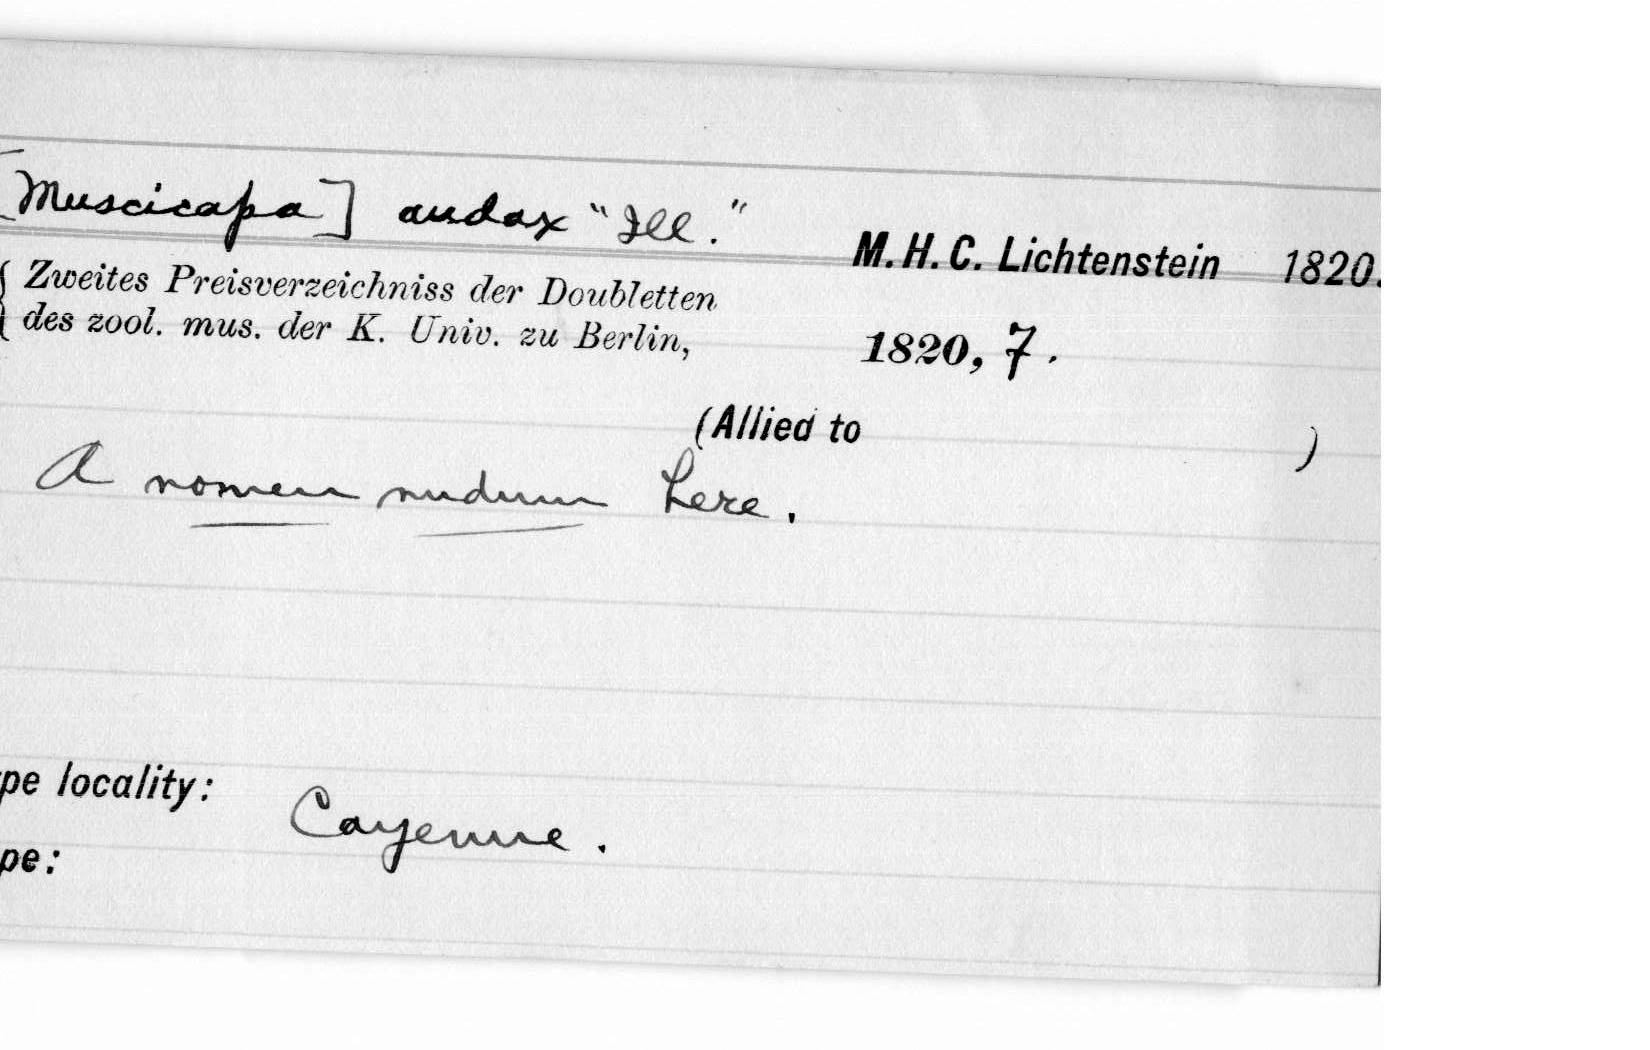 [Muscicapa] audax "Ill." M. H. C. Lichtenstein 1820.
{ Zweites Preisverzeichniss der Doubletten
des zool. mus. der K. Univ. zu Berlin, 1820, 7.
(Allied to )
A nomen nudum here.
pe locality: Cayenne.
pe: